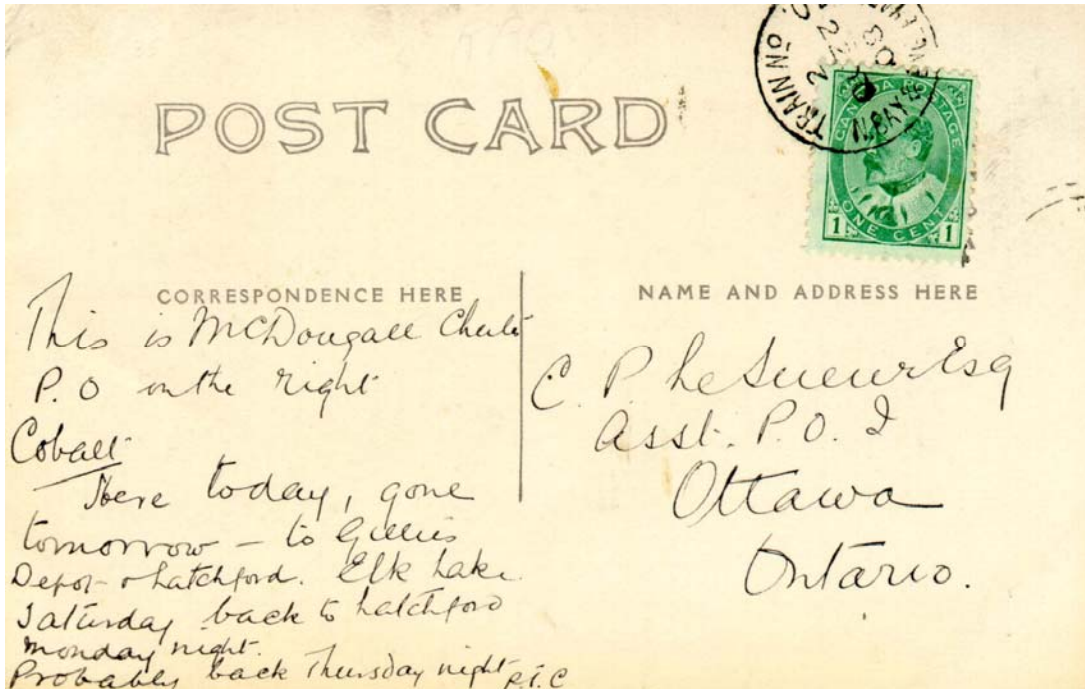 POST CARD
TRAIN No
N.BAY
CANADA POSTAGE
ONE CENT
1 1
CORRESPONDENCE HERE
This is McDougall
P.O on the right
Cobalt
Here today, gone
tomorrow – to Gillies
Depot & Latchford. Elk Lake
Saturday back to Latchford
Monday night.
Probably back Thursday night
NAME AND ADDRESS HERE
C. P. LeSueur Esq
Asst. P. O. I
Ottawa
Ontario.